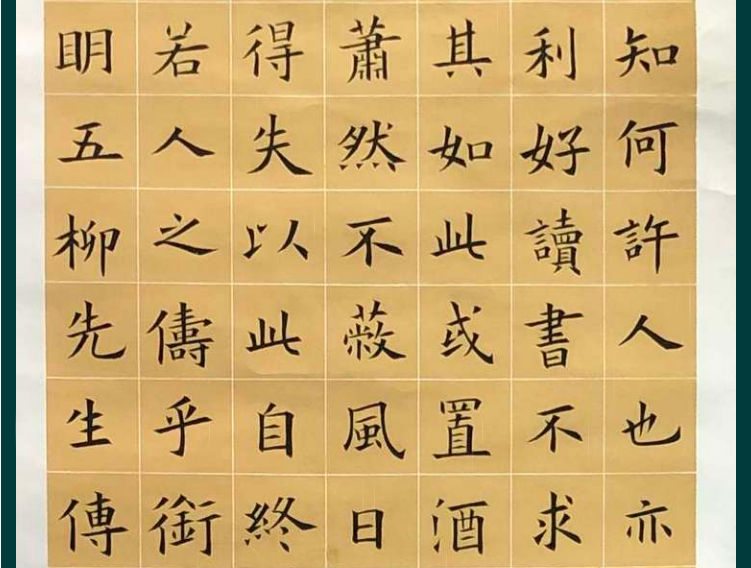 知何許人也亦
利好讀書不求
其如此或置酒
蕭然不蔽風日
得失以此自終
若人之儔乎銜
明五柳先生傳